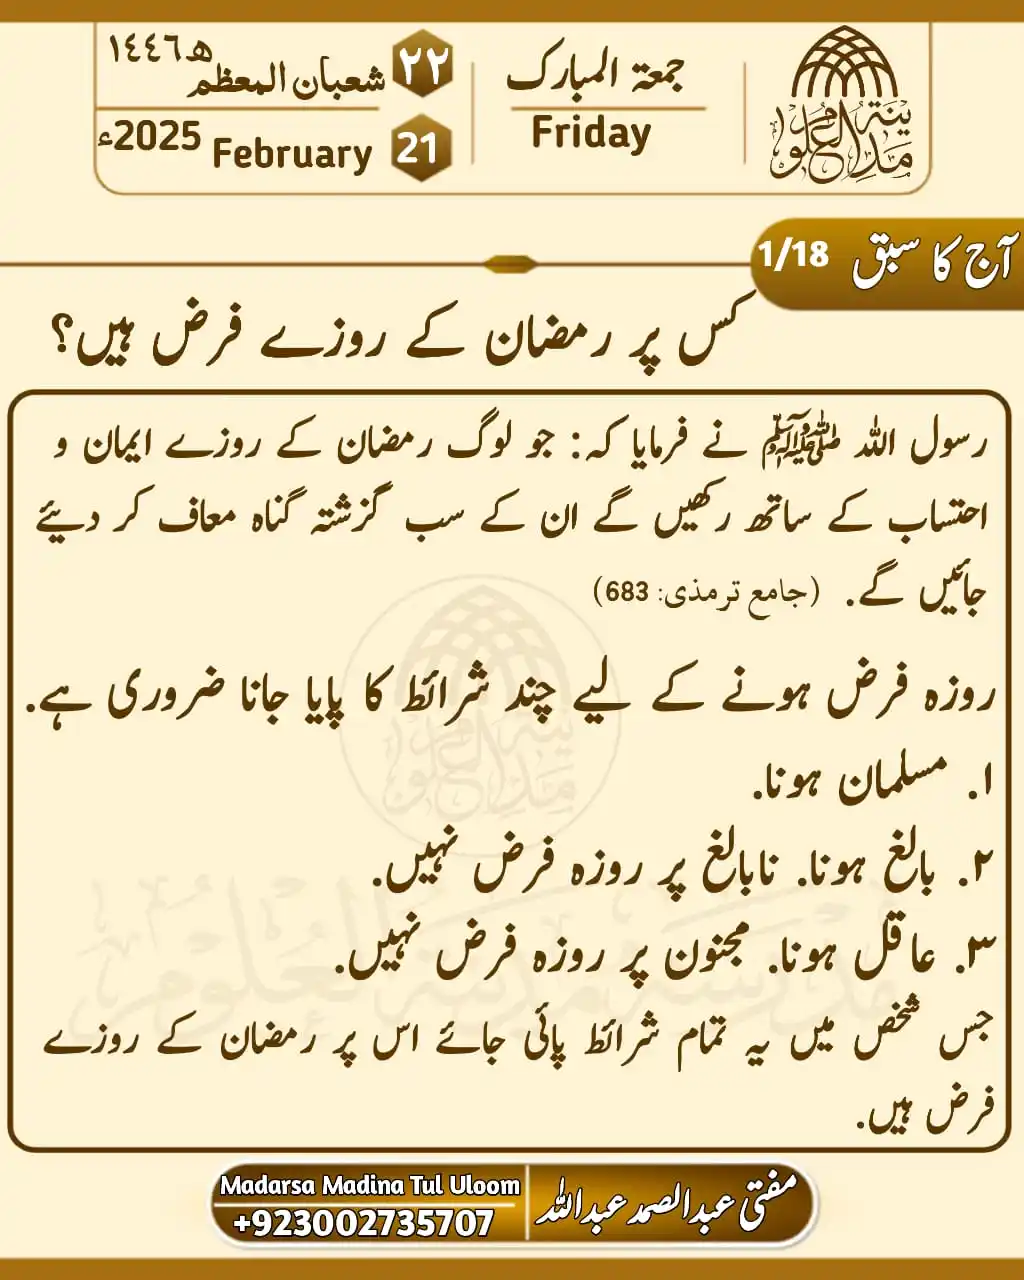 مدینۃ العلوم
جمعۃ المبارک
Friday
٢٢ شعبان المعظم ١٤٤٦ھ
21 February 2025ء
آج کا سبق 1/18
کس پر رمضان کے روزے فرض ہیں؟
رسول اللہ ﷺ نے فرمایا کہ: جو لوگ رمضان کے روزے ایمان و
احتساب کے ساتھ رکھیں گے ان کے سب گزشتہ گناہ معاف کر دیئے
جائیں گے. (جامع ترمذی: 683)
روزہ فرض ہونے کے لیے چند شرائط کا پایا جانا ضروری ہے.
۱. مسلمان ہونا.
۲. بالغ ہونا. نابالغ پر روزہ فرض نہیں.
۳. عاقل ہونا. مجنون پر روزہ فرض نہیں.
جس شخص میں یہ تمام شرائط پائی جائے اس پر رمضان کے روزے
فرض ہیں.
مفتی عبدالصمد عبداللہ
Madarsa Madina Tul Uloom
+923002735707